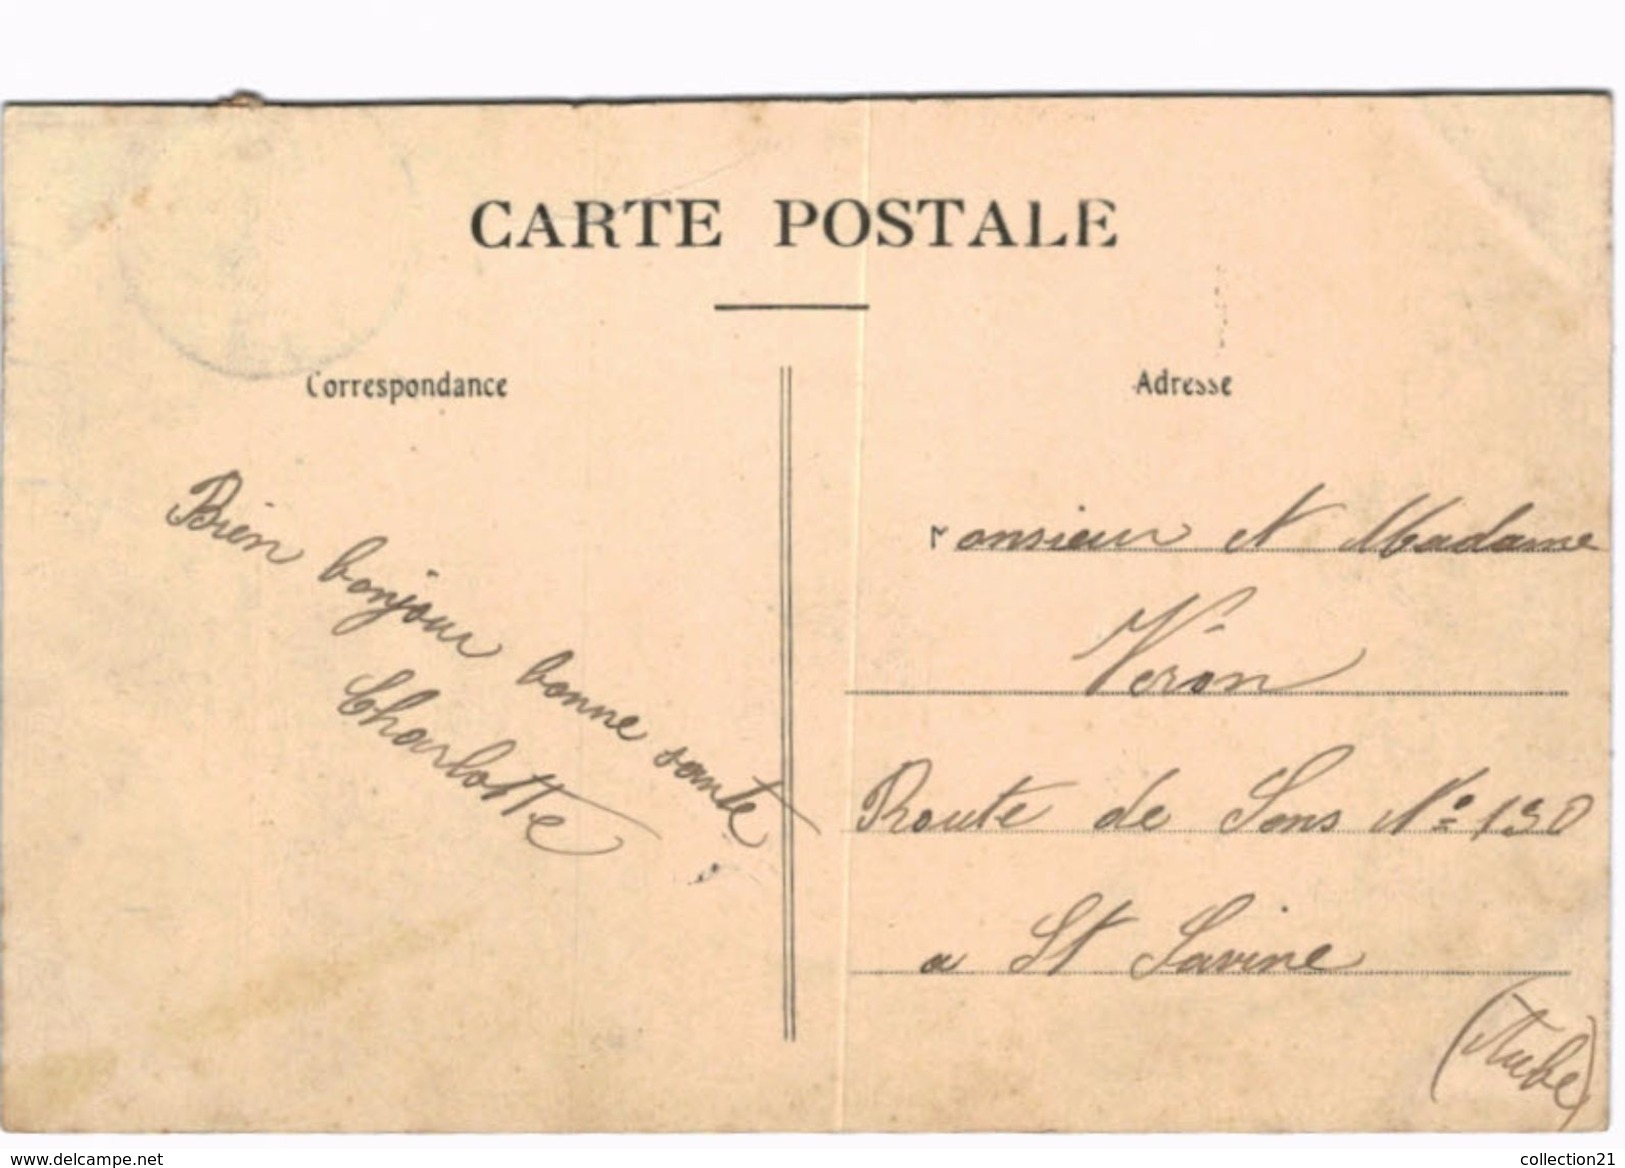 CARTE POSTALE
Correspondance
Adresse
Bien bonjour bonne sante
Charlotte
Monsieur et Madame
Véron
Route de Sens No 130
a St Savine
(Aube)
delcampe.net
collection21